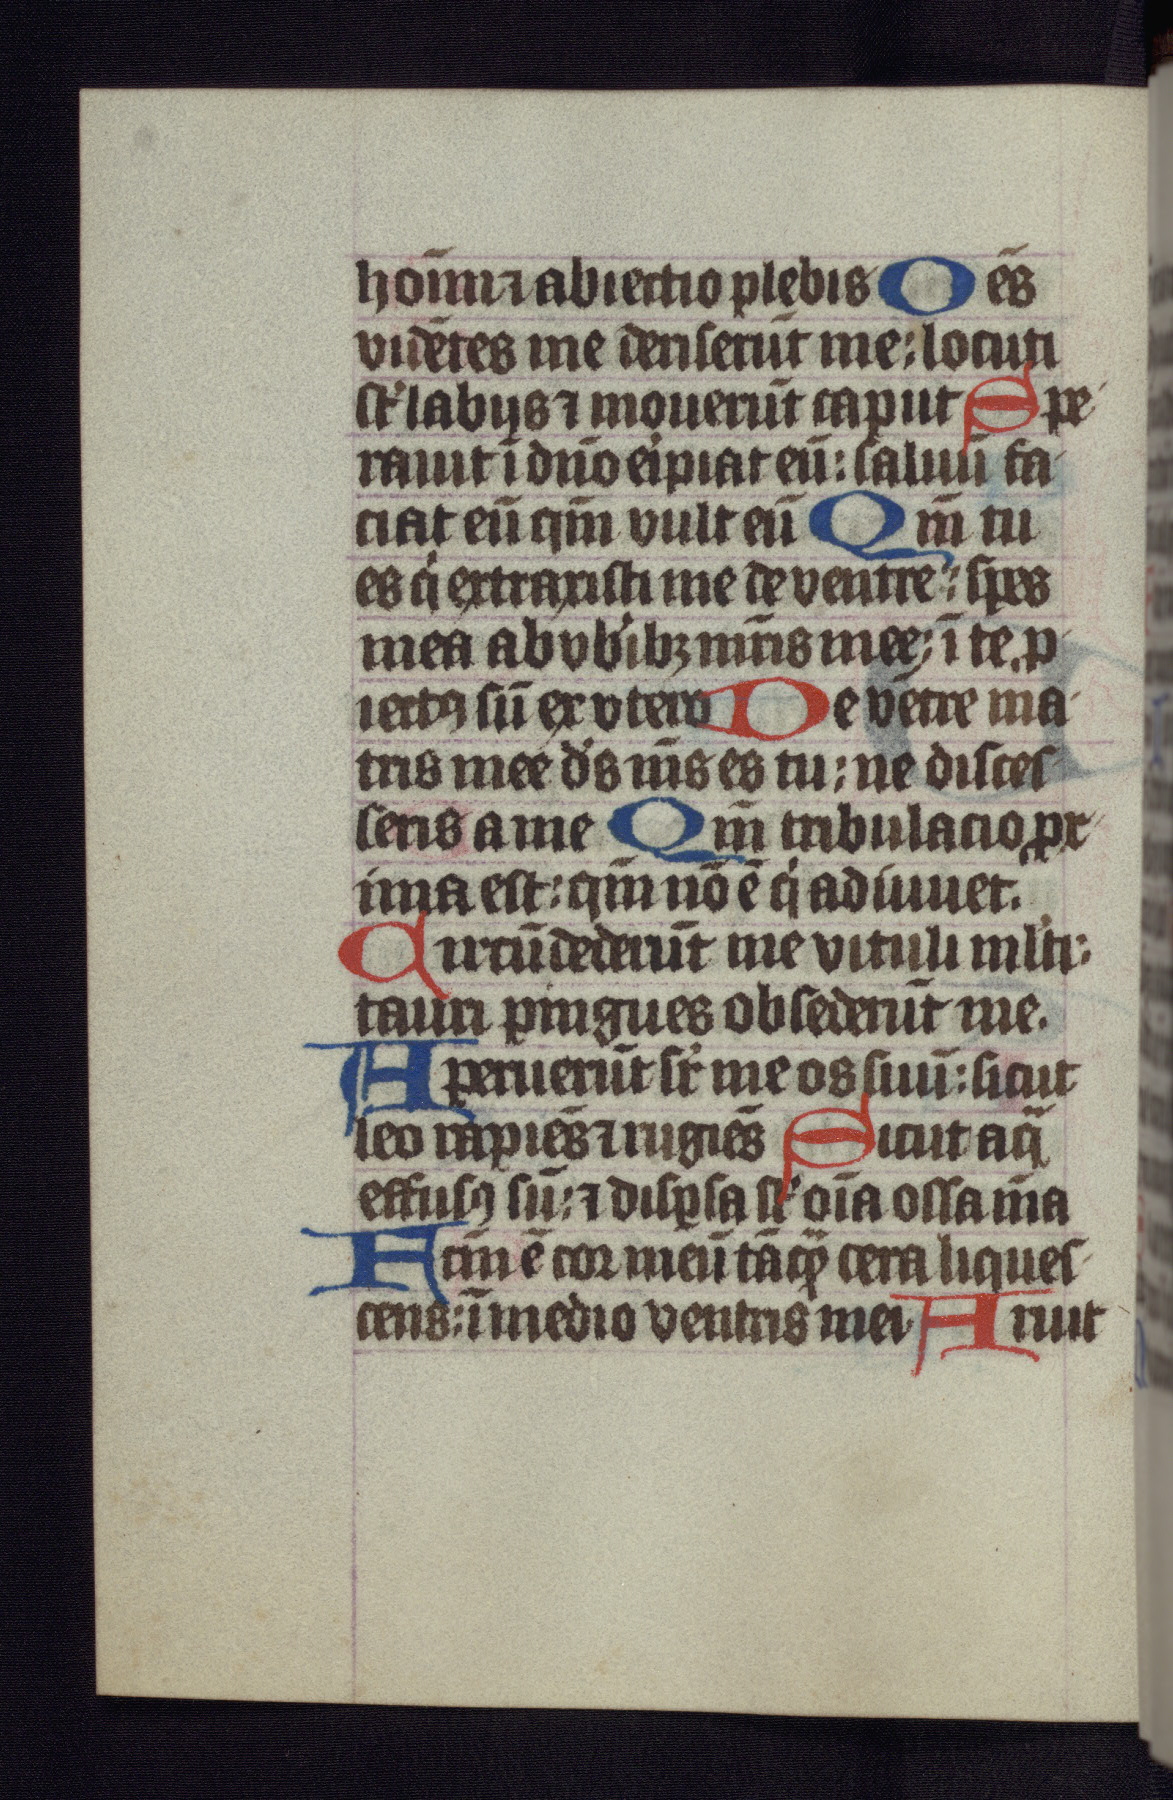 hoīm ⁊ abiectio plebis Oēs
vidētes me deriserūt me: locuti
st͛ labijs ⁊ mouerūt caput Spe
rauit ī dn̄o eͥpiat eū: saluū fa
ciat eū qm̄ vult eū Qm̄ tu
es qͥ extraxisti me de ventre: spes
mea ab vb͛ibꝫ mr̄is mee: ī te ꝓ
iectꝰ sū ex vtero De vētre ma
tris mee d͛s m̄s es tu: ne disces
seris a me Qm̄ tribulacio ꝓx
ima est: qm̄ nō ē qͥ adiuuet.
Circūdederūt me vituli ml̓ti:
tauri pingues obsederūt me.
Aperuerūt sr̓ me os suū: sicut
leo rapiēs ⁊ rugiēs Sicut aq̄
effusꝰ sū: ⁊ disꝑsa st͛ oīa ossa m̄a
Fcm̄ ē cor meū tāqͣ cera liques
cens: ī medio ventris mei Aruit